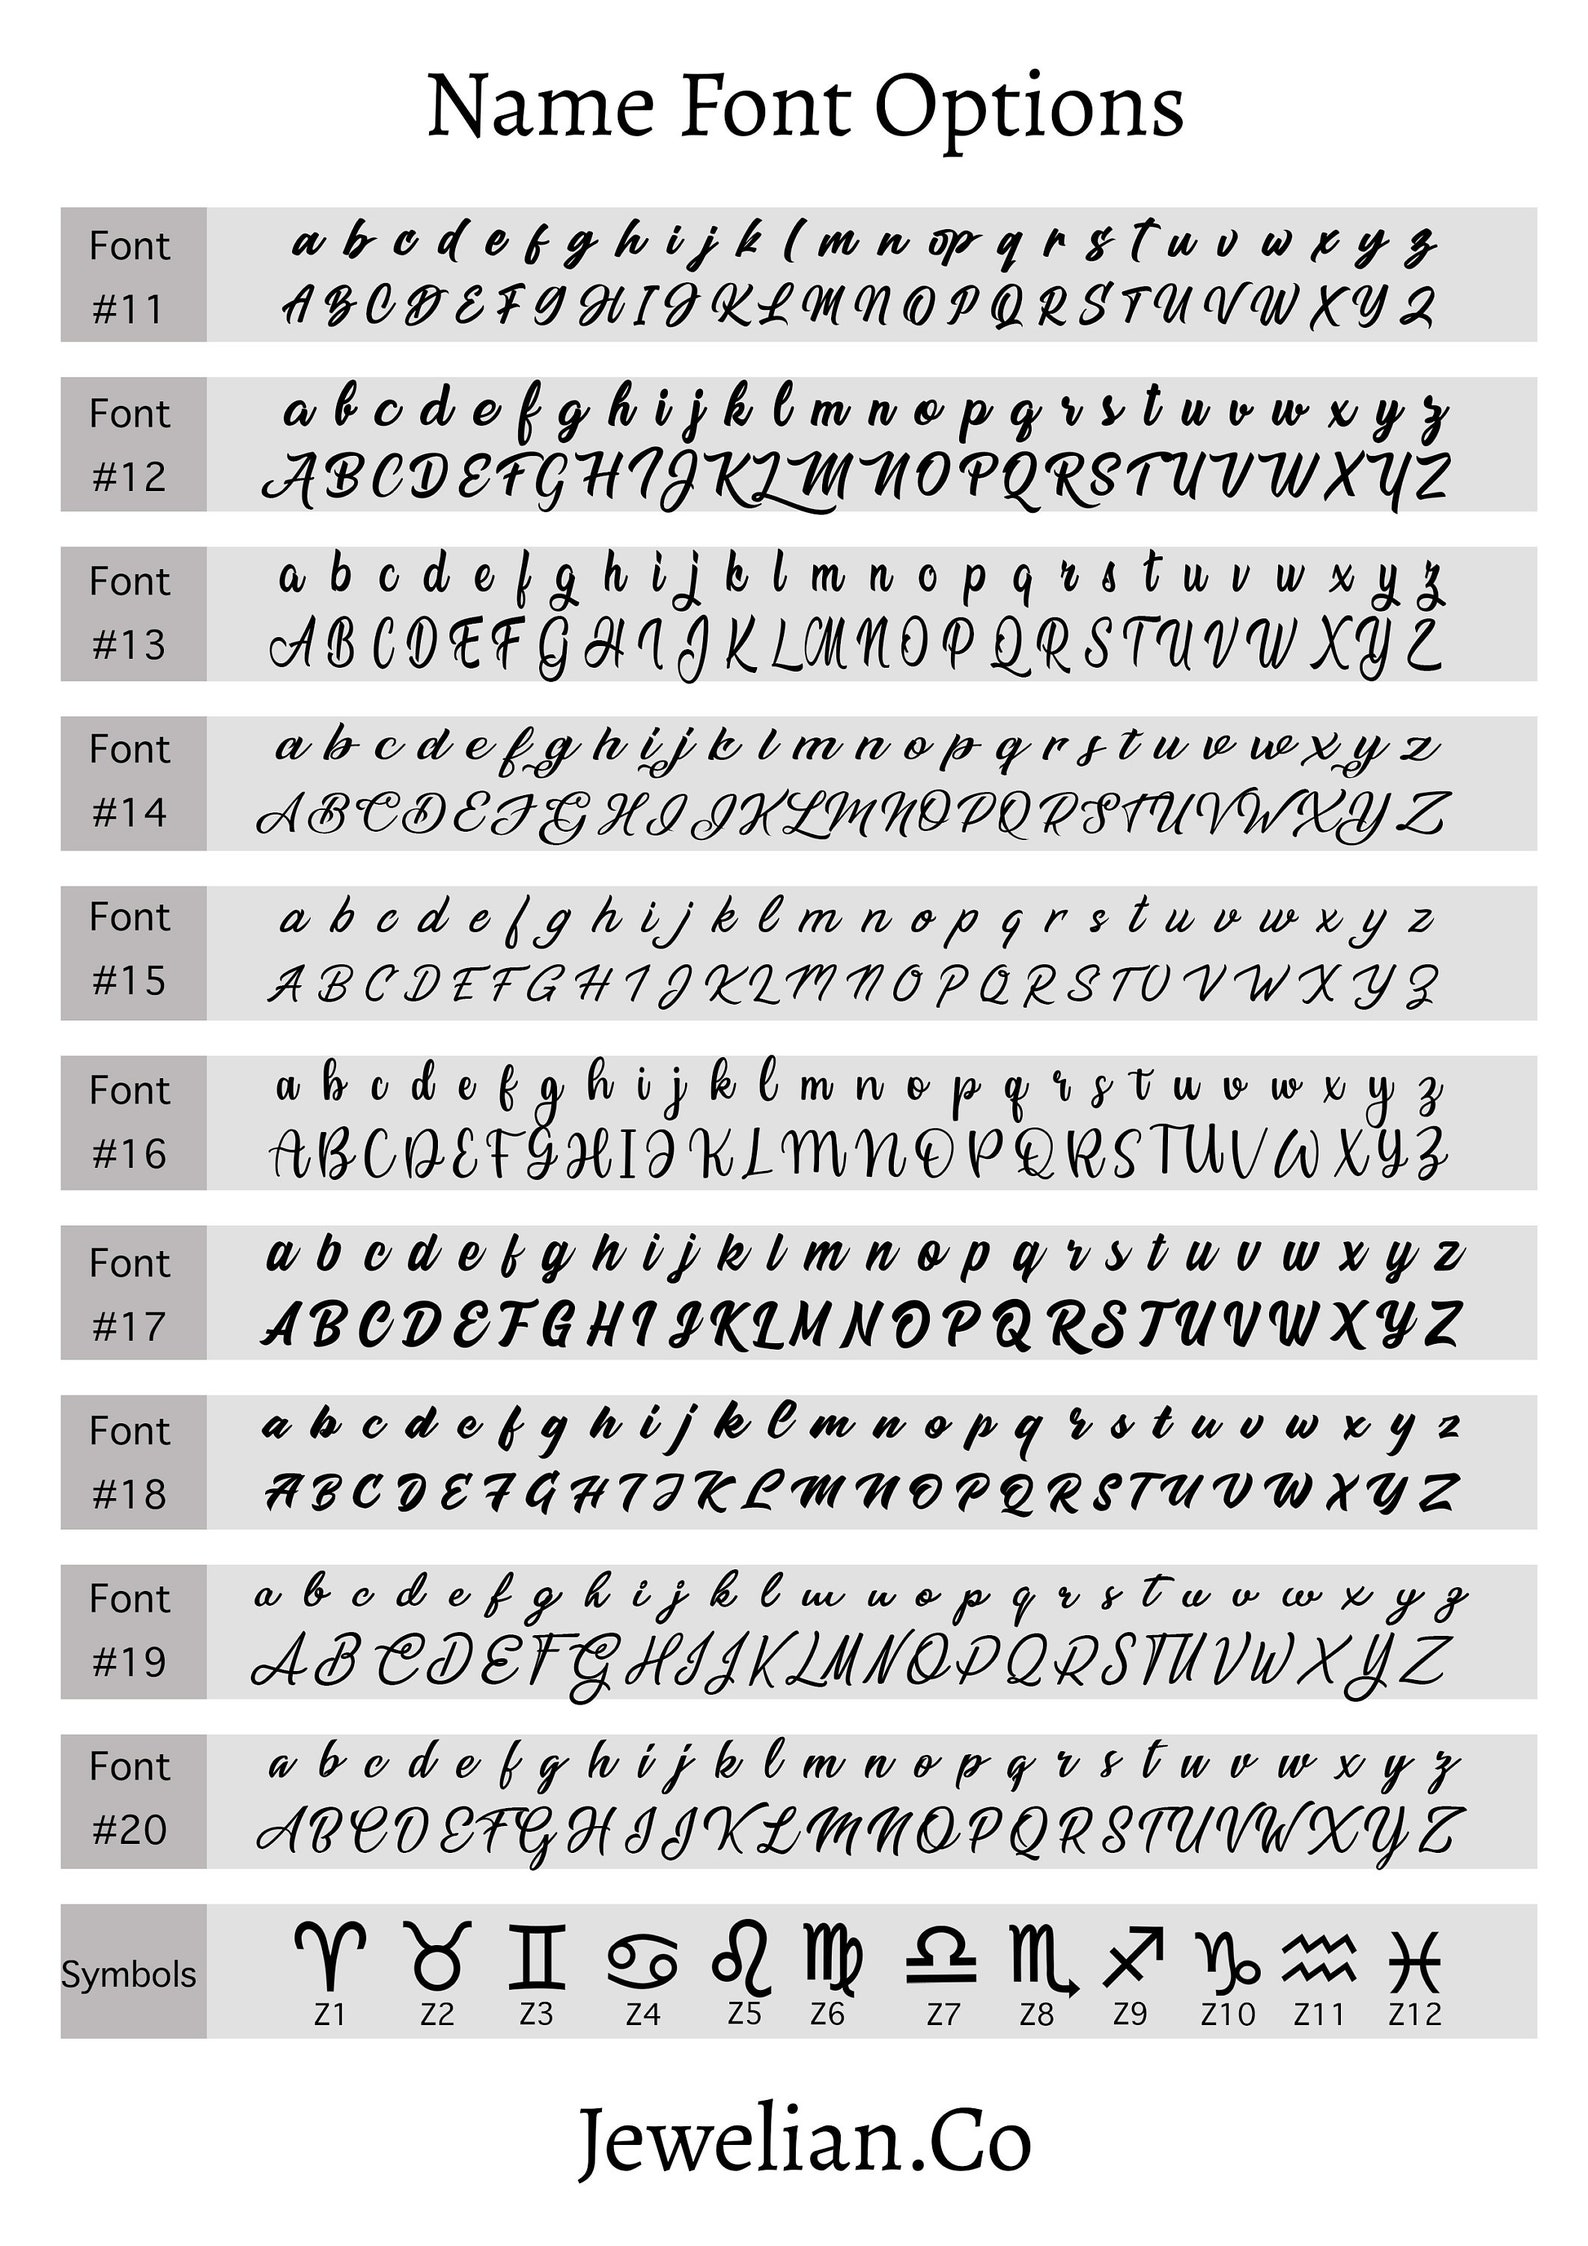 Name Font Options
Font #11
a b c d e f g h i j k l m n o p q r s t u v w x y z
A B C D E F G H I J K L M N O P Q R S T U V W X Y Z
Font #12
a b c d e f g h i j k l m n o p q r s t u v w x y z
A B C D E F G H I J K L M N O P Q R S T U V W X Y Z
Font #13
a b c d e f g h i j k l m n o p q r s t u v w x y z
A B C D E F G H I J K L M N O P Q R S T U V W X Y Z
Font #14
a b c d e f g h i j k l m n o p q r s t u v w x y z
A B C D E F G H I J K L M N O P Q R S T U V W X Y Z
Font #15
a b c d e f g h i j k l m n o p q r s t u v w x y z
A B C D E F G H I J K L M N O P Q R S T U V W X Y Z
Font #16
a b c d e f g h i j k l m n o p q r s t u v w x y z
A B C D E F G H I J K L M N O P Q R S T U V W X Y Z
Font #17
a b c d e f g h i j k l m n o p q r s t u v w x y z
A B C D E F G H I J K L M N O P Q R S T U V W X Y Z
Font #18
a b c d e f g h i j k l m n o p q r s t u v w x y z
A B C D E F G H I J K L M N O P Q R S T U V W X Y Z
Font #19
a b c d e f g h i j k l m n o p q r s t u v w x y z
A B C D E F G H I J K L M N O P Q R S T U V W X Y Z
Font #20
a b c d e f g h i j k l m n o p q r s t u v w x y z
A B C D E F G H I J K L M N O P Q R S T U V W X Y Z
Symbols
♈ ♉ ♊ ♋ ♌ ♍ ♎ ♏ ♐ ♑ ♒ ♓
Z1 Z2 Z3 Z4 Z5 Z6 Z7 Z8 Z9 Z10 Z11 Z12
Jewelian.Co